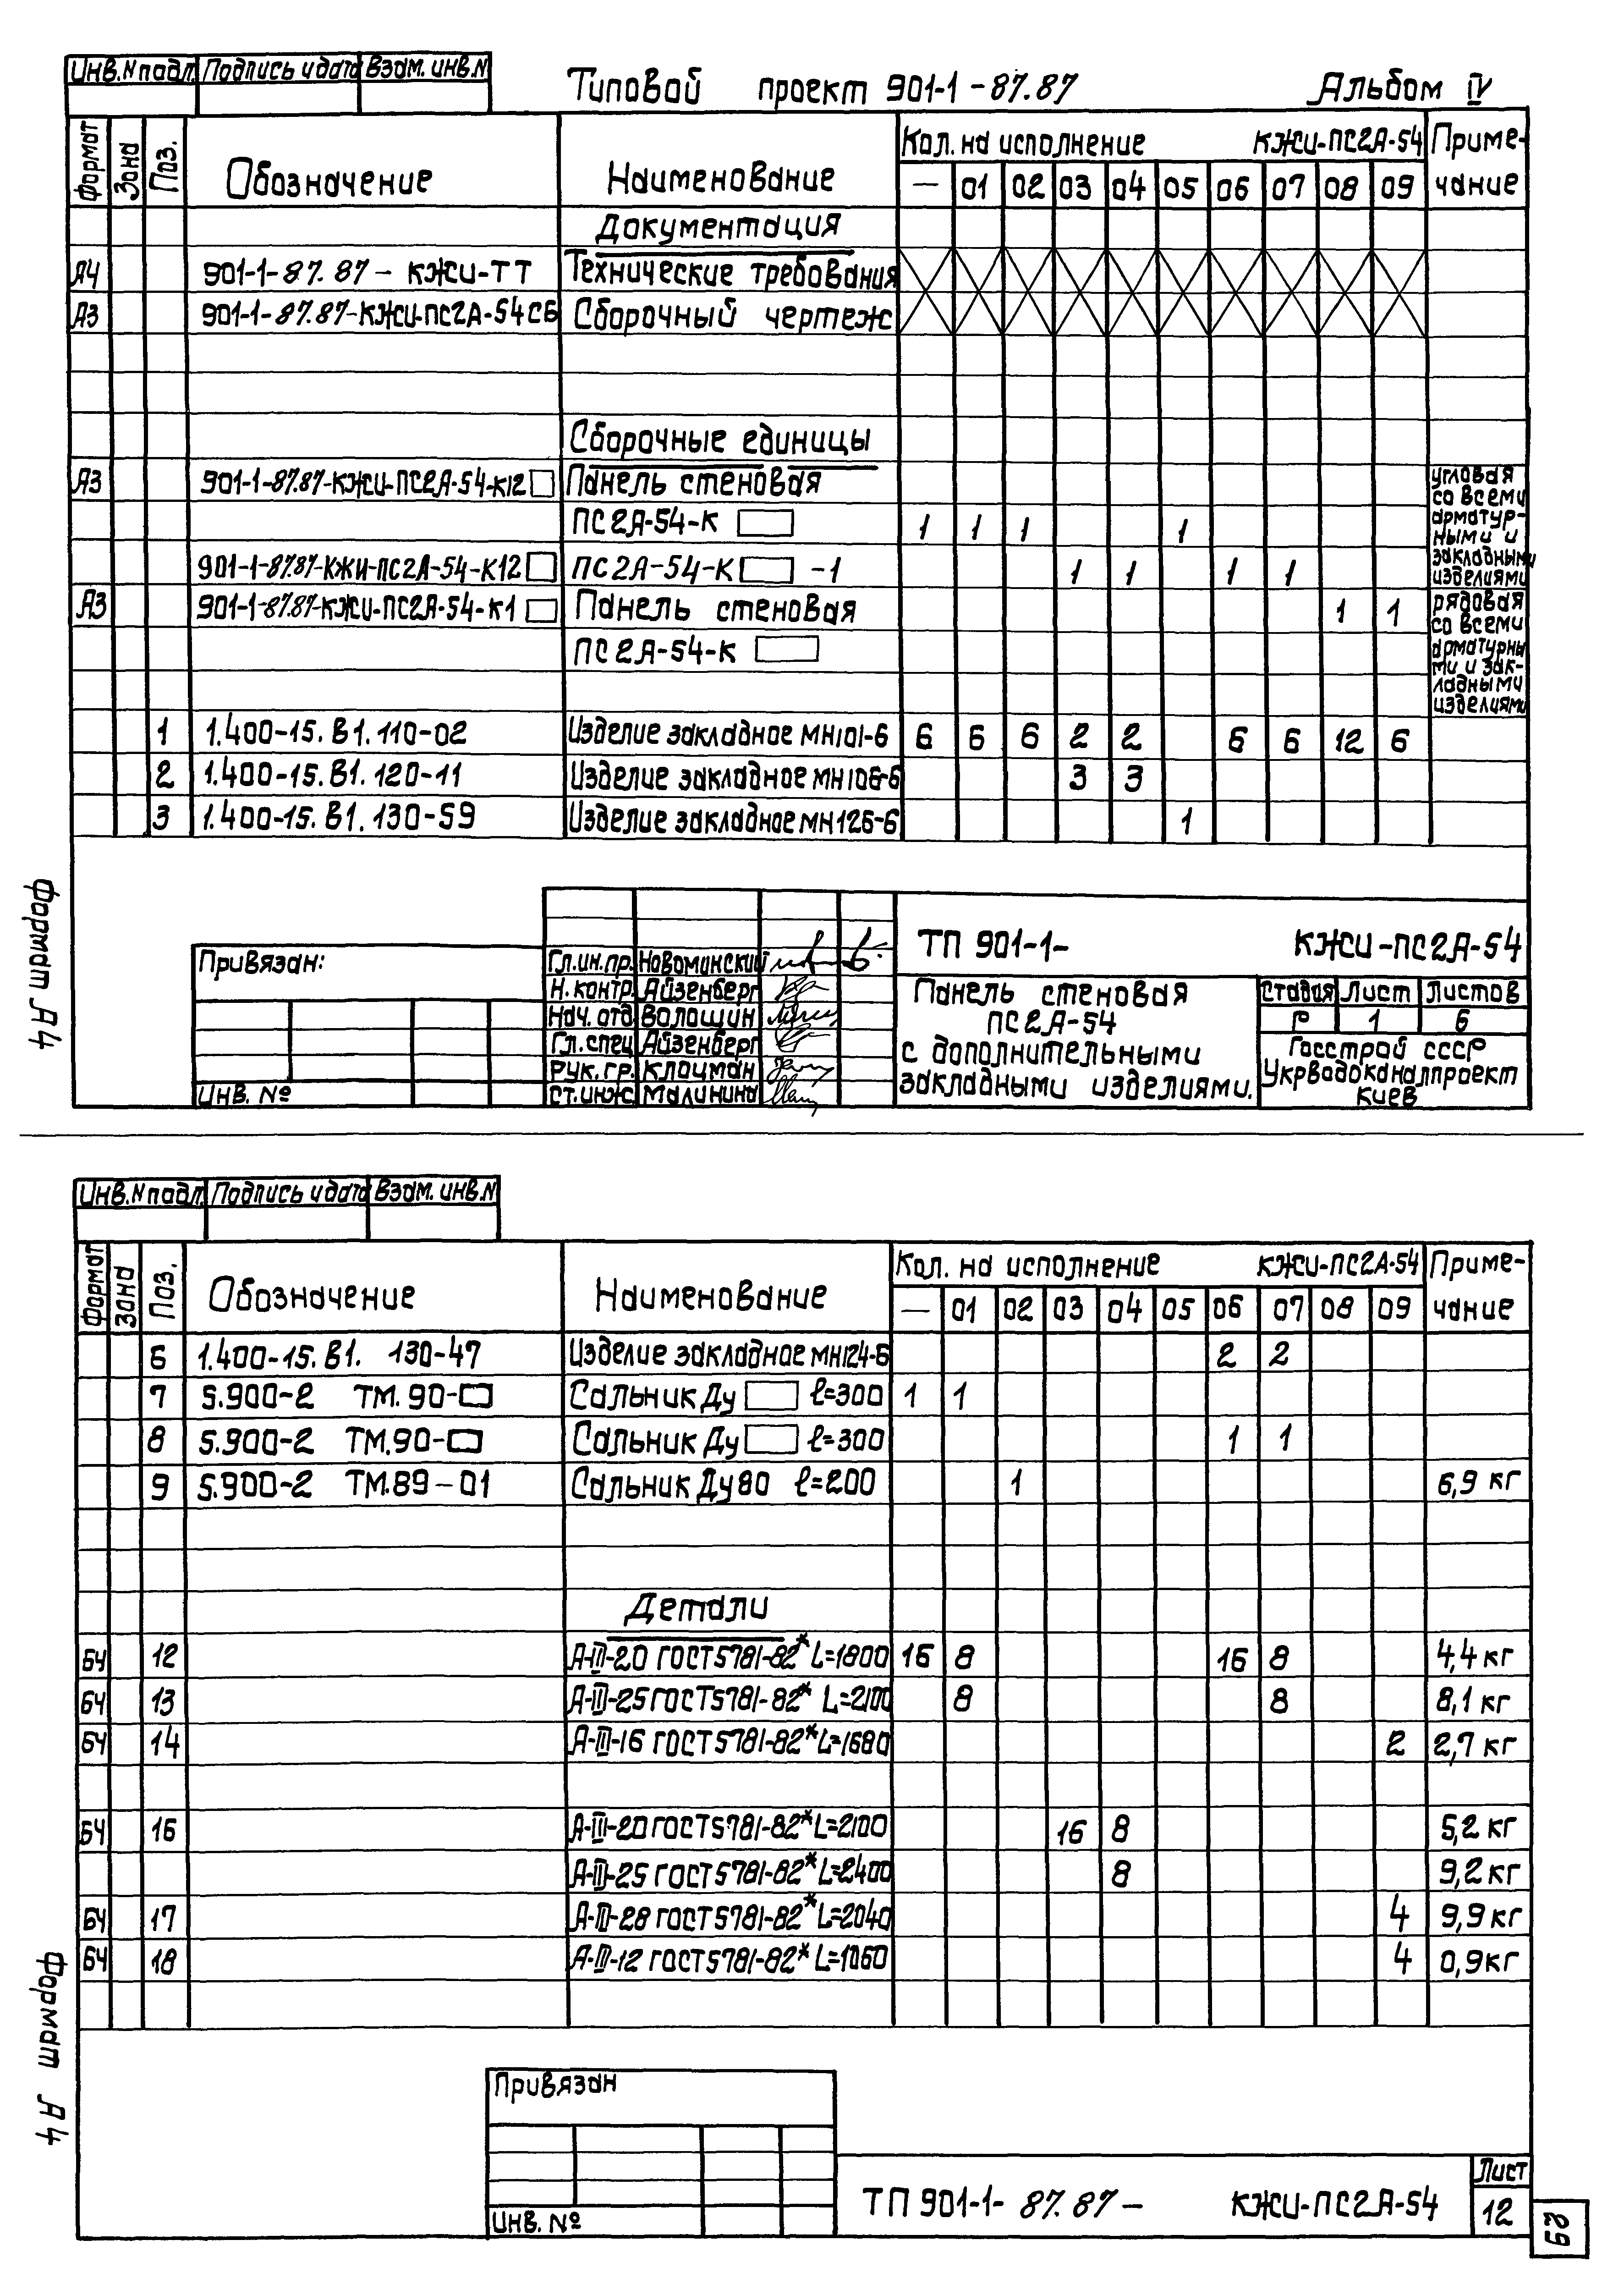 Инв.N подл. Подпись и дата Взам. инв.N
Типовой проект 901-1-87.87 Альбом IV
Формат Зона Поз. Обозначение Наименование Кол. на исполнение КЖИ-ПС2А-54 Приме-
чание
— 01 02 03 04 05 06 07 08 09
Документация
А4 901-1-87.87-КЖИ-ТТ Технические требования
А3 901-1-87.87-КЖИ-ПС2А-54СБ Сборочный чертеж
Сборочные единицы
А3 901-1-87.87-КЖИ-ПС2А-54-К12 Панель стеновая
ПС2А-54-К 1 1 1 1
угловая
со всеми
арматур-
ными и
закладными
изделиями
901-1-87.87-КЖИ-ПС2А-54-К12 ПС2А-54-К -1 1 1 1 1
А3 901-1-87.87-КЖИ-ПС2А-54-К1 Панель стеновая 1 1
ПС2А-54-К
рядовая
со всеми
арматурны
ми и зак-
ладными
изделиями
1 1.400-15.В1.110-02 Изделие закладное МН101-6 6 6 6 2 2 6 6 12 6
2 1.400-15.В1.120-11 Изделие закладное МН106-6 3 3
3 1.400-15.В1.130-59 Изделие закладное МН126-6 1
Формат А4
Привязан:
Инв. №
Гл.ин.пр. Новоминский
Н.контр. Айзенберг
Нач.отд Волошин
Гл.спец Айзенберг
Рук.гр. Клоцман
Ст.инж. Малинина
ТП 901-1- КЖИ-ПС2А-54
Панель стеновая
ПС2А-54
с дополнительными
закладными изделиями.
Стадия Лист Листов
Р 1 6
Госстрой СССР
Укрводоканалпроект
Киев
Инв.N подл. Подпись и дата Взам. инв.N
Формат Зона Поз. Обозначение Наименование Кол. на исполнение КЖИ-ПС2А-54 Приме-
чание
— 01 02 03 04 05 06 07 08 09
6 1.400-15.В1. 130-47 Изделие закладное МН124-6 2 2
7 5.900-2 ТМ.90- Сальник Ду ℓ=300 1 1
8 5.900-2 ТМ.90- Сальник Ду ℓ=300 1 1
9 5.900-2 ТМ.89-01 Сальник Ду80 ℓ=200 1 6,9 кг
Детали
БЧ 12 А-III-20 ГОСТ5781-82* L=1800 16 8 16 8 4,4 кг
БЧ 13 А-III-25 ГОСТ5781-82* L=2100 8 8 8,1 кг
БЧ 14 А-III-16 ГОСТ5781-82* L=1680 2 2,7 кг
БЧ 16 А-III-20 ГОСТ5781-82* L=2100 16 8 5,2 кг
А-III-25 ГОСТ5781-82* L=2400 8 9,2 кг
БЧ 17 А-III-28 ГОСТ5781-82* L=2040 4 9,9 кг
БЧ 18 А-III-12 ГОСТ5781-82* L=1060 4 0,9 кг
Формат А4
Привязан
Инв. №
ТП 901-1-87.87- КЖИ-ПС2А-54
Лист
12